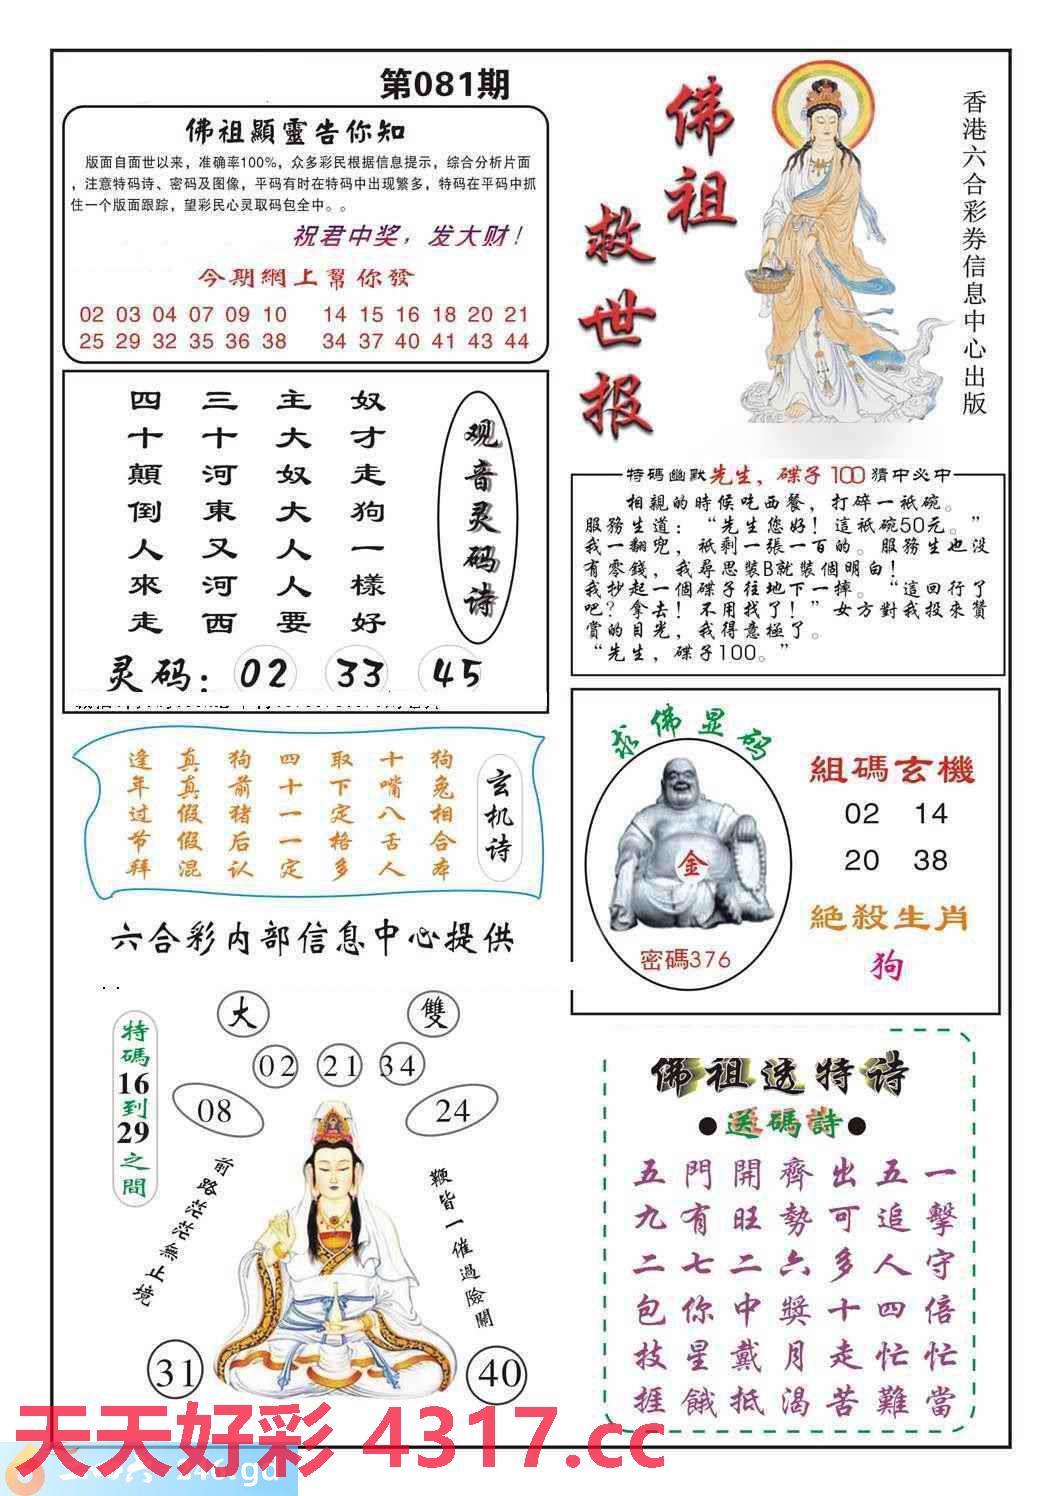 第081期
佛祖顯靈告你知
版面自面世以来，准确率100%，众多彩民根据信息提示，综合分析片面
，注意特码诗、密码及图像，平码有时在特码中出现繁多，特码在平码中抓
住一个版面跟踪，望彩民心灵取码包全中。。
祝君中奖，发大财！
今期網上幫你發
02 03 04 07 09 10 14 15 16 18 20 21
25 29 32 35 36 38 34 37 40 41 43 44
佛祖
救世报
香港六合彩券信息中心出版
观音灵码诗
奴才走狗一樣好
主大奴大人人要
三十河東又河西
四十顛倒人來走
灵码：02 33 45
特碼幽默先生，碟子100猜中必中
相親的時候吃西餐，打碎一祇碗。
服務生道：“先生您好！這祇碗50元。”
我一翻兜，祇剩一張一百的。服務生也没
有零錢，我尋思裝B就裝個明白！
我抄起一個碟子往地下一摔。“這回行了
吧？拿去！不用找了！”女方對我投來贊
賞的目光，我得意極了。
“先生，碟子100。”
玄机诗
狗兔相合本
十嘴八舌人
取下定格多
四十一一定
狗前猪后认
真真假假混
逢年过节拜
求佛显码
金
密碼376
組碼玄機
02 14
20 38
絕殺生肖
狗
六合彩内部信息中心提供
特碼16到29之間
大 雙
02 21 34
08 24
前路茫茫無止境
鞭皆一催過險關
31 40
佛祖透特诗
●送碼詩●
五門開齊出五一
九有旺勢可追擊
二七二六多人守
包你中獎十四倍
技星戴月走忙忙
捱餓抵渴苦難當
天天好彩 4317.cc
246.gd